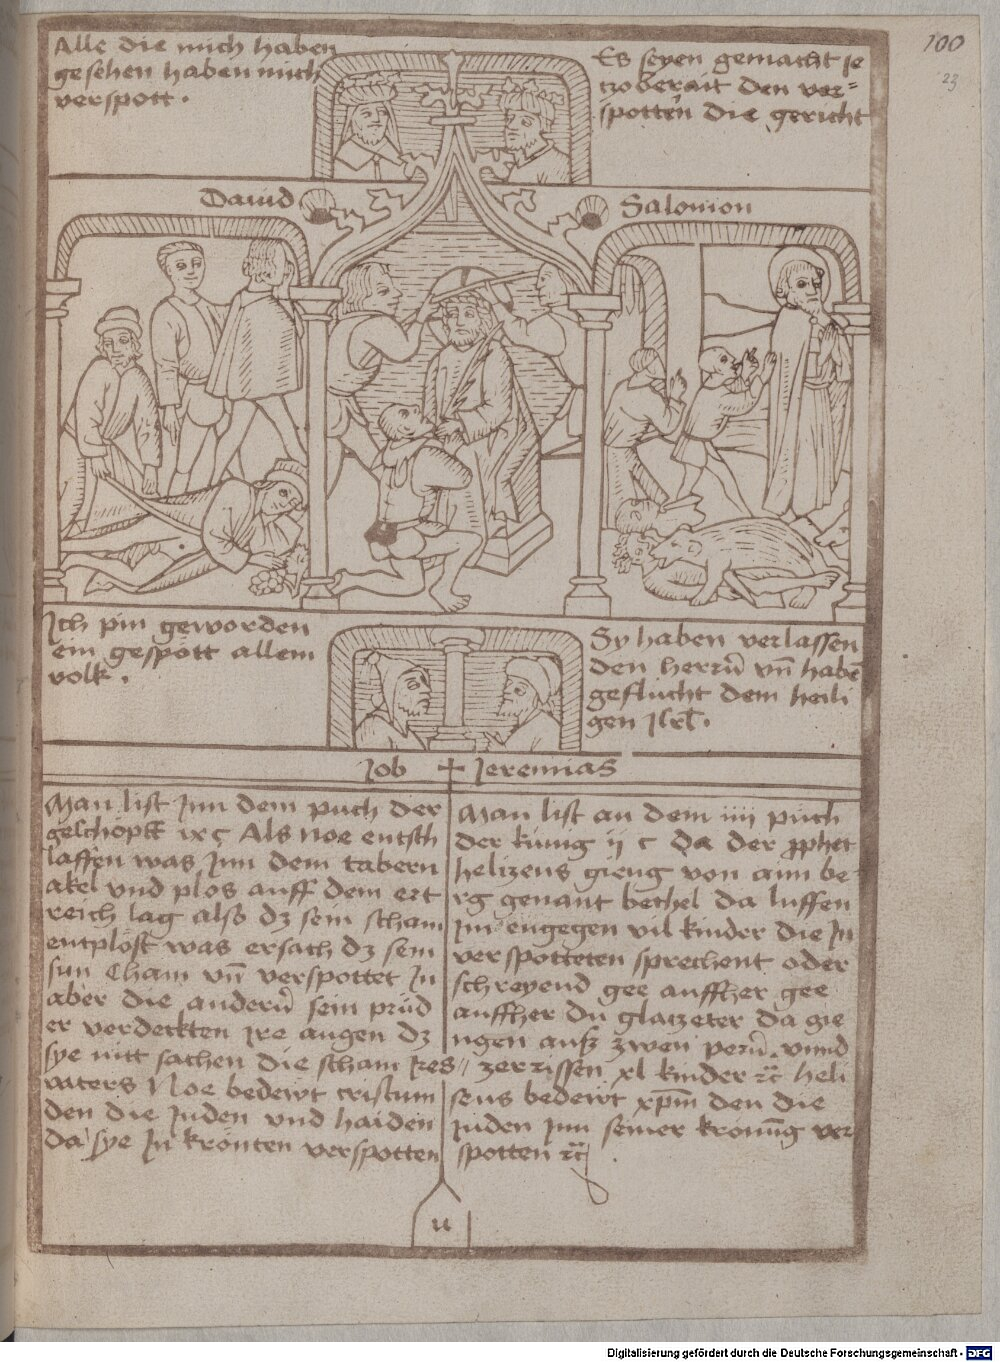 100
23
Alle die mich haben
gesehen haben mich
verspott .
Es seyen gemacht
den ver=
spotten die gericht
Dauid
Salomon
Ich pin geworden
ein gespött allem
volk .
Sy haben verlassen
den herrn̄ vn̄ habē
geflucht dem heili
gen Isrl̄ .
Job + Jeremias
Man list Jnn dem puch der
geschöpff ix ç Als Noe entsch
laffen was Jnn dem tabern
akel vnd plos auff dem ert
reich lag also dz sein scham
entplöst was ersach dz sein
sun Cham vn̄ verspottet Jn
aber die andern̄ sein prüd
er verdeckten Ire augen dz
sye nitt sachen die scham Ires
vaters Noe bedewt cristum
den die Juden vnd haiden
da sye Jn krönten verspotten
Man list an dem iiii puch
der künig ij c da der pphet
helizeus gieng von aim be
rg genant bethel da luffen
Jm engegen vil kinder die Jn
verspotteten sprechent oder
schreyend gee auffher gee
auffher du glatzeter da gie
ngen auß zwen pern̄ . vnnd
zerrissen xl kinder ⁊c̄ heli
seus bedewt xp̄m den die
juden Jnn seiner kronūg ver
spotten ⁊c̄
u
Digitalisierung gefördert durch die Deutsche Forschungsgemeinschaft - DFG